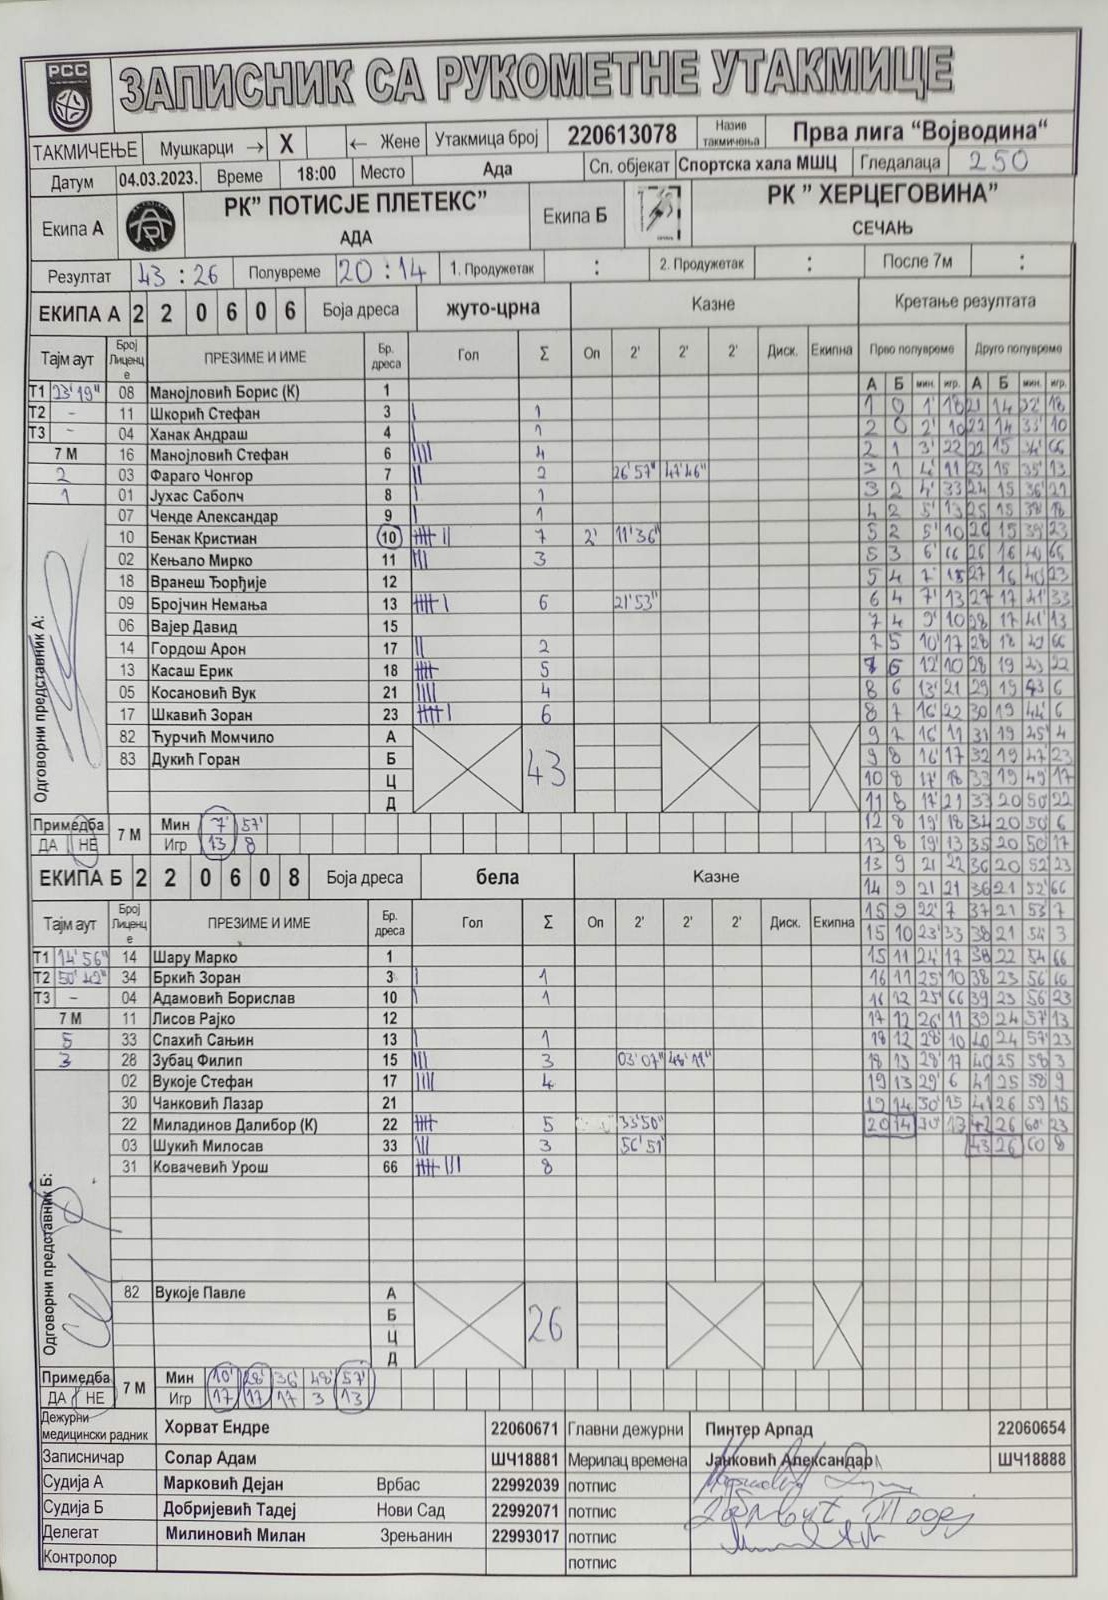 РСС
ЗАПИСНИК СА РУКОМЕТНЕ УТАКМИЦЕ
ТАКМИЧЕЊЕ Мушкарци → X ← Жене Утакмица број 220613078 Назив такмичења Прва лига “Војводина“
Датум 04.03.2023. Време 18:00 Место Ада Сп. објекат Спортска хала МШЦ Гледалаца 250
Екипа А РК” ПОТИСЈЕ ПЛЕТЕКС” АДА Екипа Б РК ” ХЕРЦЕГОВИНА” СЕЧАЊ
Резултат 43 : 26 Полувреме 20 : 14 1. Продужетак : 2. Продужетак : После 7м :
ЕКИПА А 2 2 0 6 0 6 Боја дреса жуто-црна Казне Кретање резултата
Тајм аут Број Лиценце ПРЕЗИМЕ И ИМЕ Бр. дреса Гол Σ Оп 2' 2' 2' Диск. Екипна Прво полувреме Друго полувреме
А Б мин. игр. А Б мин. игр.
Т1 23'19" 08 Манојловић Борис (К) 1
Т2 - 11 Шкорић Стефан 3 | 1
Т3 - 04 Ханак Андраш 4 | 1
7 М 16 Манојловић Стефан 6 |||| 4
2 03 Фараго Чонгор 7 || 2 26'57" 47'46"
1 01 Јухас Саболч 8 | 1
07 Ченде Александар 9 | 1
10 Бенак Кристиан 10 7 2' 11'36"
02 Кењало Мирко 11 ||| 3
18 Вранеш Ђорђије 12
09 Бројчин Немања 13 6 21'53"
06 Вајер Давид 15
14 Гордош Арон 17 || 2
13 Касаш Ерик 18 5
05 Косановић Вук 21 |||| 4
17 Шкавић Зоран 23 6
82 Ћурчић Момчило А
83 Дукић Горан Б 43
Ц
Д
Одговорни представник А:
Примедба ДА НЕ 7 М Мин 7' 57'
Игр 13 8
1 0 1' 18 21 14 32' 18
2 0 2' 10 22 14 33' 10
2 1 3' 22 22 15 34' 66
3 1 4' 11 23 15 35' 13
3 2 4' 33 24 15 36' 21
4 2 5' 13 25 15 38' 18
5 2 5' 10 26 15 39' 23
5 3 6' 66 26 16 40 66
5 4 7' 15 27 16 40 23
6 4 7' 13 27 17 41' 33
7 4 9' 10 28 17 41' 13
7 5 10' 17 28 18 42 66
7 6 12' 10 28 19 43 22
8 6 13' 21 29 19 43 6
8 7 16' 22 30 19 44' 6
9 7 16' 11 31 19 45' 4
9 8 16' 17 32 19 47' 23
10 8 17' 18 33 19 49' 17
11 8 17' 21 33 20 50' 22
12 8 19' 18 34 20 50' 6
13 8 19' 13 35 20 50' 17
13 9 21 22 36 20 52' 23
14 9 21 21 36 21 52' 66
15 9 22' 7 37 21 53' 7
15 10 23' 33 38 21 54 3
15 11 24' 17 38 22 54 66
16 11 25' 10 38 23 56 66
16 12 25' 66 39 23 56' 23
17 12 26' 11 39 24 57' 13
18 12 28' 10 40 24 57' 23
18 13 28' 17 40 25 58' 3
19 13 29' 6 41 25 58' 9
19 14 30' 15 41 26 59 15
20 14 30' 13 42 26 60' 23
43 26 60 8
ЕКИПА Б 2 2 0 6 0 8 Боја дреса бела Казне
Тајм аут Број Лиценце ПРЕЗИМЕ И ИМЕ Бр. дреса Гол Σ Оп 2' 2' 2' Диск. Екипна
Т1 14'56" 14 Шару Марко 1
Т2 50'42" 34 Бркић Зоран 3 | 1
Т3 - 04 Адамовић Борислав 10 | 1
7 М 11 Лисов Рајко 12
5 33 Спахић Сањин 13 | 1
3 28 Зубац Филип 15 ||| 3 03'07" 48'11"
02 Вукоје Стефан 17 |||| 4
30 Чанковић Лазар 21
22 Миладинов Далибор (К) 22 5 33'50"
03 Шукић Милосав 33 ||| 3 56'51"
31 Ковачевић Урош 66 8
82 Вукоје Павле А
Б 26
Ц
Д
Одговорни представник Б:
Примедба ДА НЕ 7 М Мин 10' 28' 36' 48' 57'
Игр 17 17 17 3 13
Дежурни медицински радник Хорват Ендре 22060671 Главни дежурни Пинтер Арпад 22060654
Записничар Солар Адам ШЧ18881 Мерилац времена Јанковић Александар ШЧ18888
Судија А Марковић Дејан Врбас 22992039 потпис
Судија Б Добријевић Тадеј Нови Сад 22992071 потпис
Делегат Милиновић Милан Зрењанин 22993017 потпис
Контролор потпис